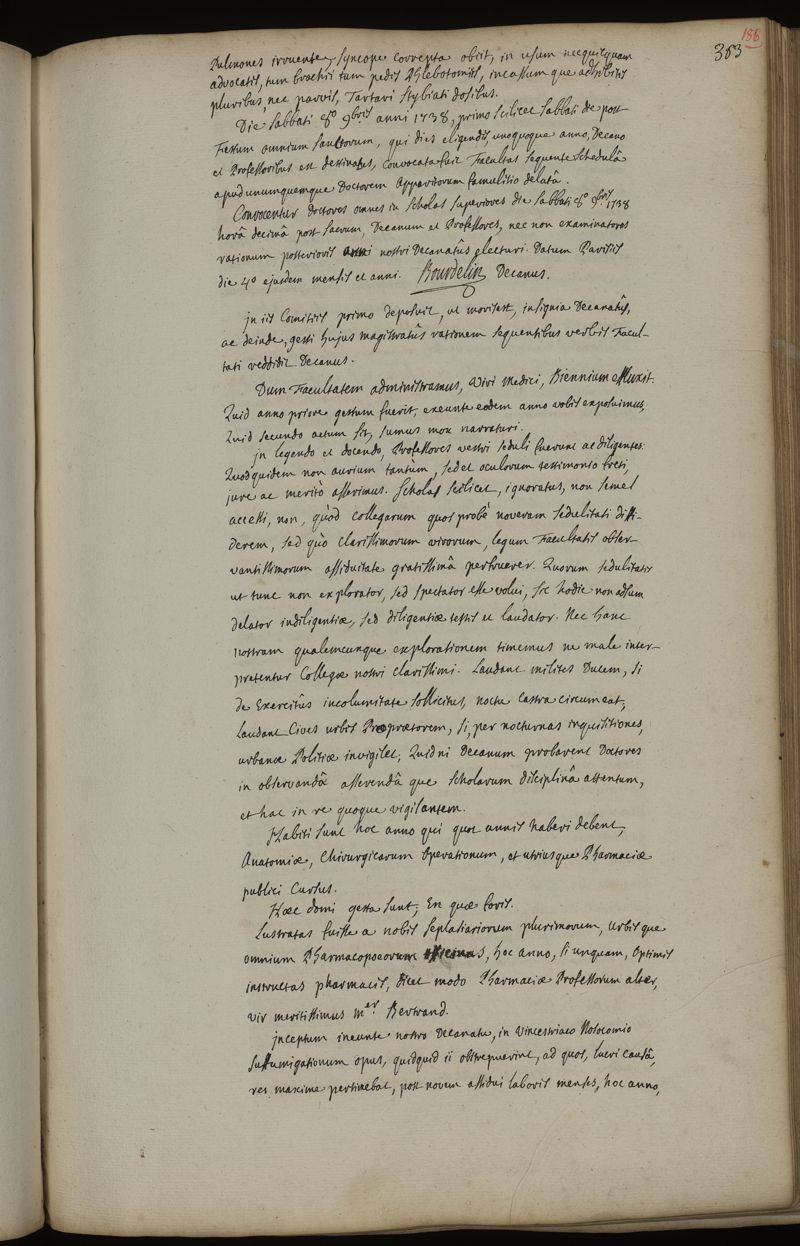 186
353
Pulmones irruente, syncope correpta obiit, in usum nec quicquam
advocatis, tum brachii tum pedis Phlebotomiis, incassumque adhibitis
pluribus, nec parvis, Tartari stybiati dosibus.
Die sabbati 8º 9bris anni 1738, primo scilicet sabbati die post
Festum omnium sanctorum, qui dies eligendis, unoquoque anno, Decano
et Professoribus est destinatus, convocata fuit Facultas sequente schedulâ
apud unumquemque Doctorem Apparitorum famulitio delatâ.
Convocentur doctores omnes in scholas superiores die sabbati 8º 9bris 1738
horâ decimâ post sacrum, Decanum et Professores, nec non examinatores
rationum posterioris anni nostri Decanatûs electuri. Datum Parisiis
die 4º ejusdem mensis et anni. Bourdelin Decanus.
jn iis Comitiis primo deposuit, ut moris est, insignia Decanatûs,
ac deinde, gesti hujus magistratûs rationem sequentibus verbis Facul-
tati reddidit Decanus.
Dum Facultatem administramus, Viri Medici, Biennium effluxit.
Quid anno priore gestum fuerit, exeunte eodem anno vobis exposuimus,
Quid secundo actum sit, sumus mox narraturi.
jn legendo et docendo, Professores vestri seduli fuerunt ac diligentes.
Quod quidem non aurium tantùm, sed et oculorum testimonio freti,
jure ac meritò asserimus. Scholas scilicet, ignoratus, non semel
accessi, non, quòd collegarum quos probè noveram sedulitati diffi-
derem, sed quò clarissimorum virorum, legum Facultatis obser-
vantissimorum assiduitate gratissimâ perfruerer. Quorum sedulitatis
ut tunc non explorator, sed spectator esse volui, sic hodie non adsum
delator indiligentiæ, sed diligentiæ testis et laudator. Nec hanc
nostram qualemcunque explorationem timemus ne male inter-
pretentur Collegæ nostri clarissimi. Laudant milites Ducem, si
de Exercitûs incolumitate sollicitus, noctu castra circumeat;
Laudant Cives urbis Propraetorem, si, per nocturnas inquisitiones,
urbanæ Politiæ invigilet; Quidni Decanum probarent Doctores
in observandâ asserendâque scholarum disciplinâ attentum,
et hac in re quoque vigilantem.
Habiti sunt hoc anno qui quot annis haberi debent,
Anatomiæ, Chirurgicarum Operationum, et utriusque Pharmaciæ
publici Cursus.
Hæc domi gesta sunt; En quæ foris.
Lustratas fuisse a nobis seplasiariorum plurimorum, Urbisque
omnium Pharmacopoeorum officinas, hoc anno, si unquam, Optimis
instructas pharmacis, dicet modo Pharmaciæ Professorum alter,
vir meritissimus mer. Bertrand.
jnceptum ineunte nostro Decanatu, in Vincestriaco Nosocomio
suffumigationum opus, quidquid ii obstrepuerint, ad quos, lucri causâ,
res maxime pertinebat, post novem assidui laboris menses, hoc anno,